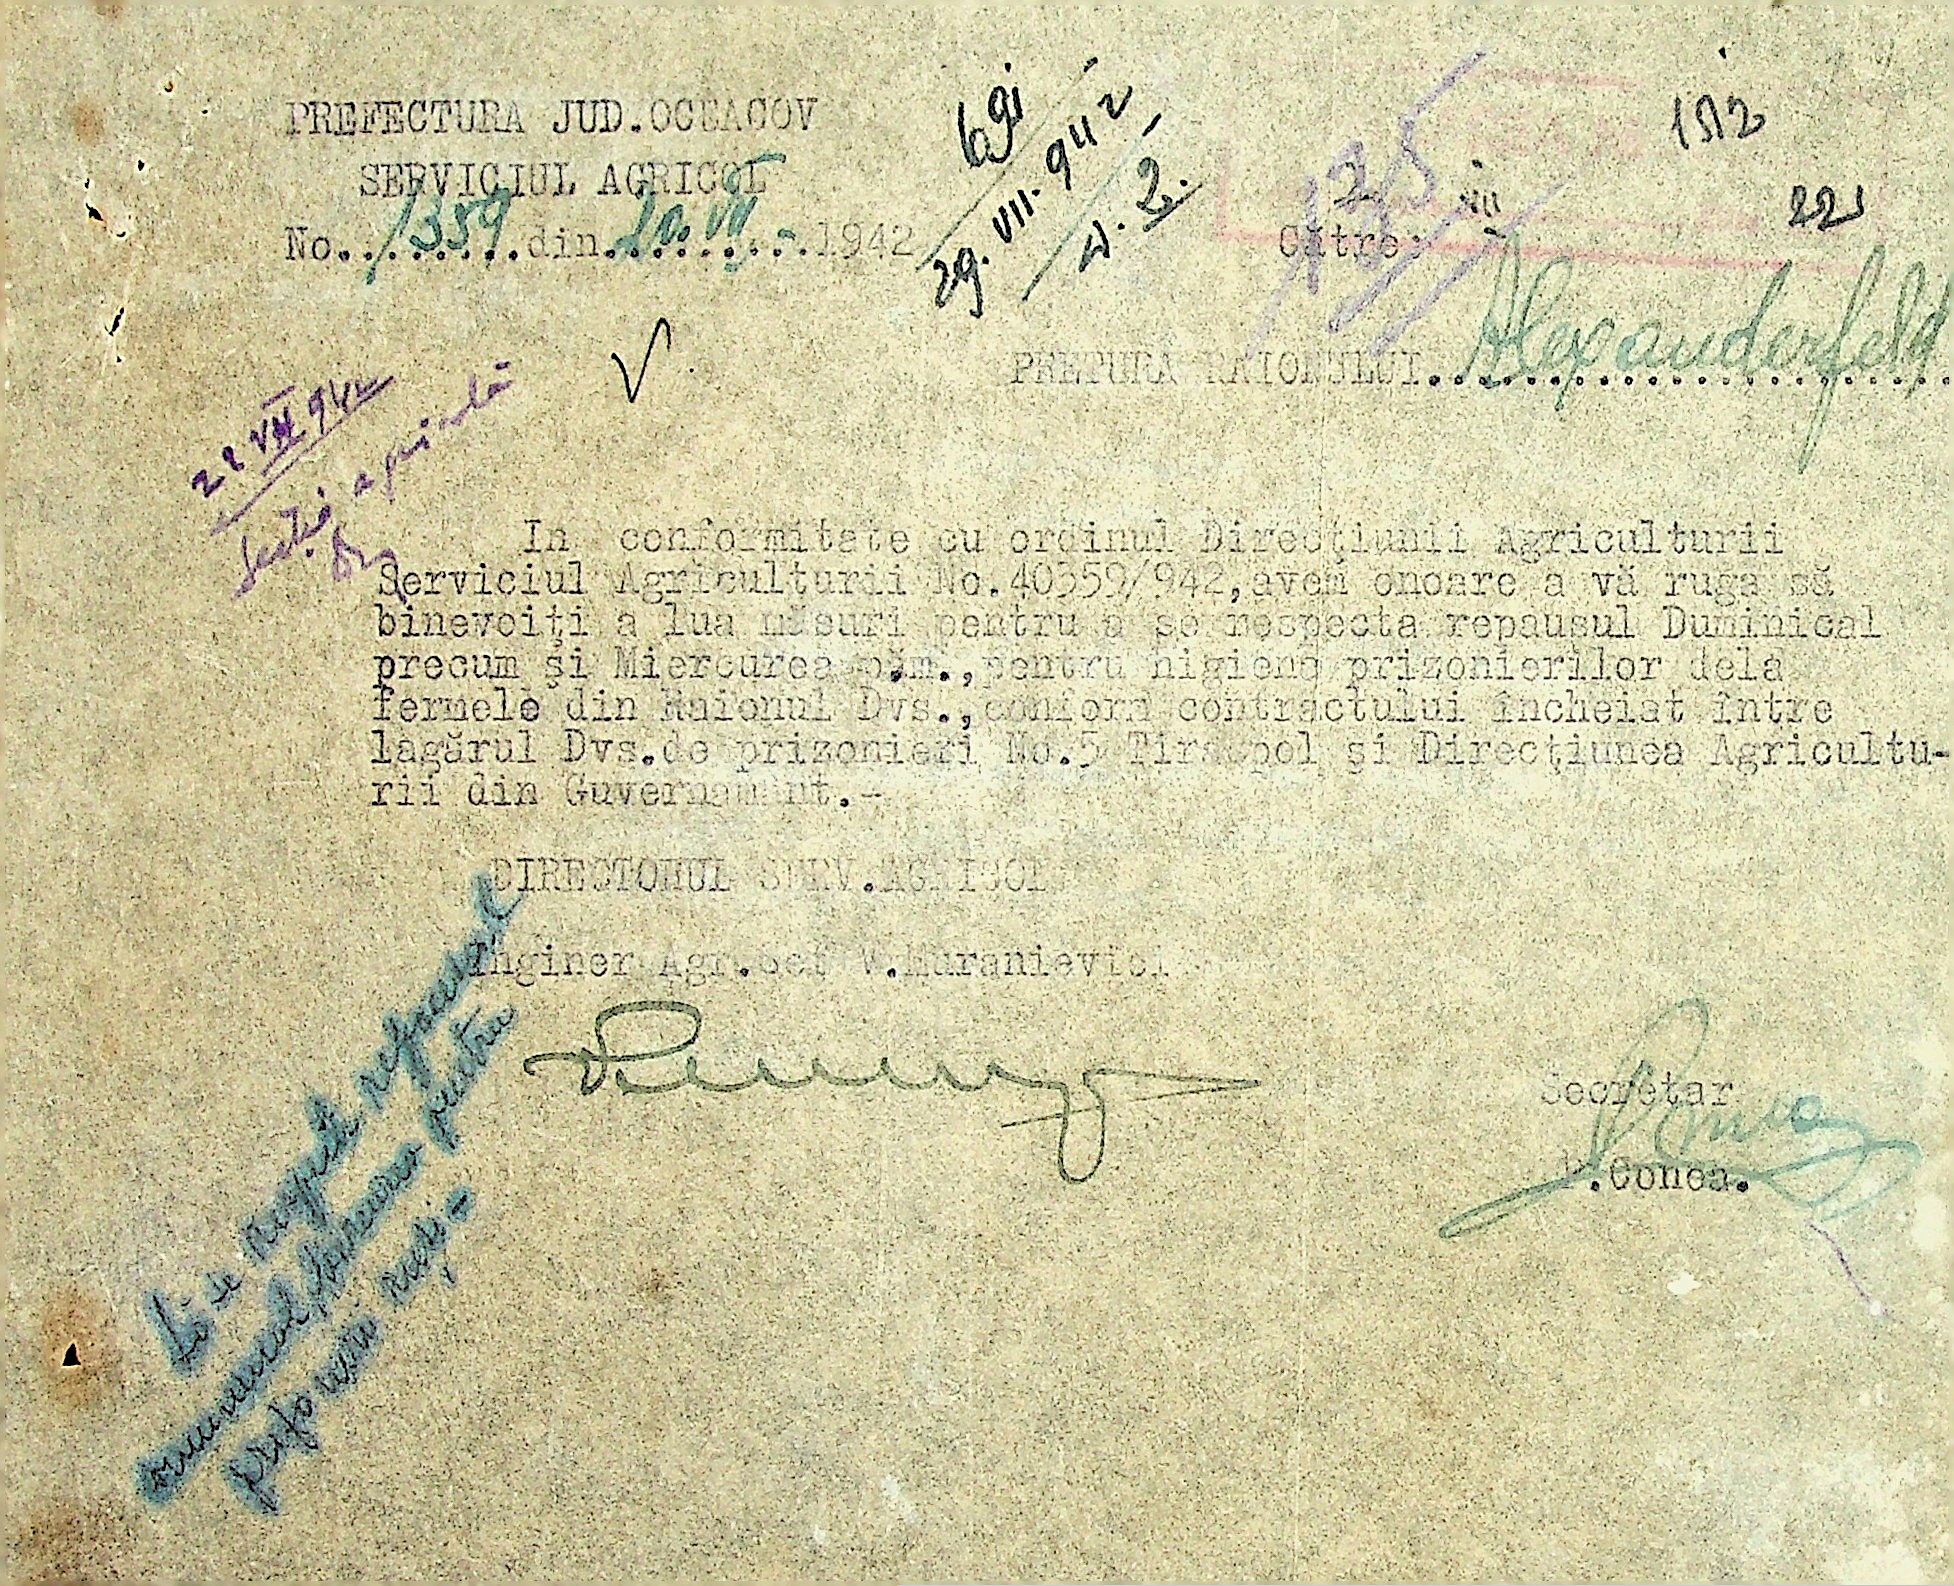 PREFECTURA JUD.OCEACOV
SERVICIUL AGRICOL
No. 1359 din 20. VII 1942
691
29. VII. 942
1512
221
Către:
PRETURA RAIONULUI Alexanderfeld
22 VII 942
Secția agricolă
In conformitate cu ordinul Direcţiunii Agriculturii
Serviciul Agriculturii No.40359/942,avem onoare a vă ruga să
binevoiţi a lua măsuri pentru a se respecta repausul Duminical
precum şi Miercurea p.m.,pentru higiena prizonierilor dela
fermele din Raionul Dvs.,conform contractului încheiat între
lagărul Dvs.de prizonieri No.5 Tiraspol şi Direcţiunea Agricultu-
rii din Guvernamânt.-
DIRECTORUL SERV.AGRICOL
Inginer Agr.Sef V.Muranievici
Secretar
.Conea.
Să se respecte repausul
duminical, Miercurea pentru
prizonierii ruși -